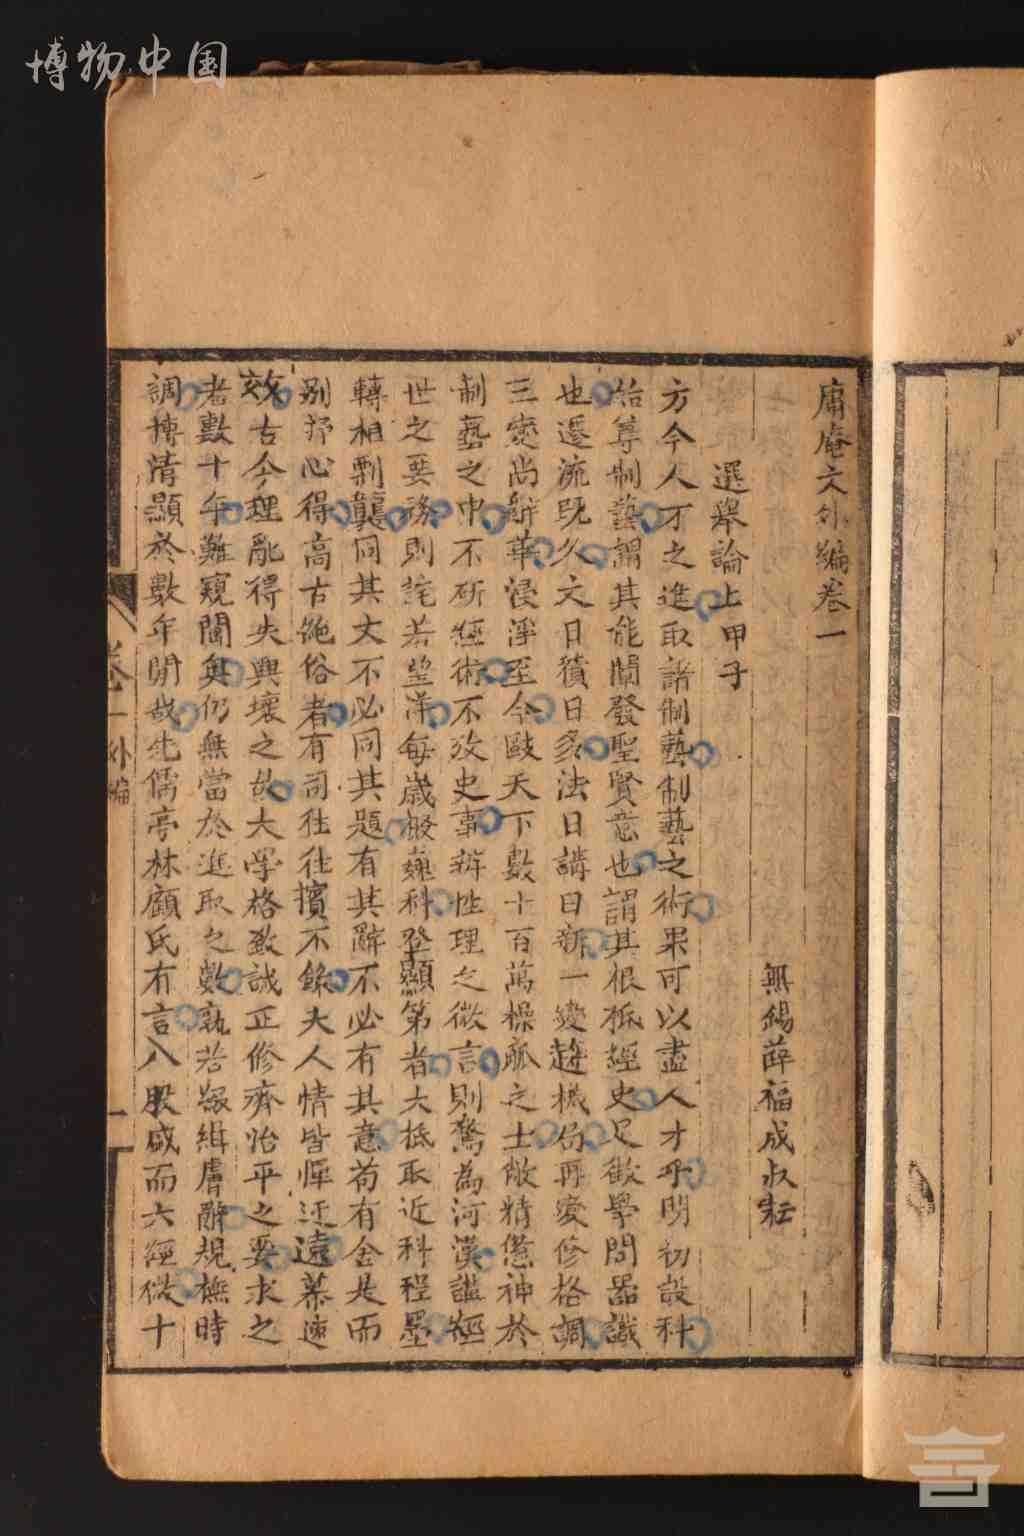 博物中国
庸庵文外編卷一
無錫薛福成叔耘
選舉論上甲子
方今人才之進取諸制藝制藝之術果可以盡人才乎明初設科
始尊制藝謂其能闡發聖賢意也謂其根柢經史足徵學問器識
也遷流既久文日積日多法日講日新一變趨機局再變修格調
三變尚辭華浸淫至今敺天下數十百萬操觚之士敝精憊神於
制藝之中不研經術不攷史事辨性理之微言則驚為河漢講經
世之要務則詫若望洋每歲掇巍科登顯第者大抵取近科程墨
轉相剽襲同其文不必同其題有其辭不必有其意苟有舍是而
别抒心得高古絶俗者有司往往擯不錄夫人情皆憚迂遠慕速
效古今理亂得失興壞之故大學格致誠正修齊治平之要求之
者數十年難窺閫奥仍無當於進取之數孰若綴緝膚辭規橅時
調摶清顯於數年閒哉先儒亭林顧氏有言八股盛而六經微十
卷一外編
一